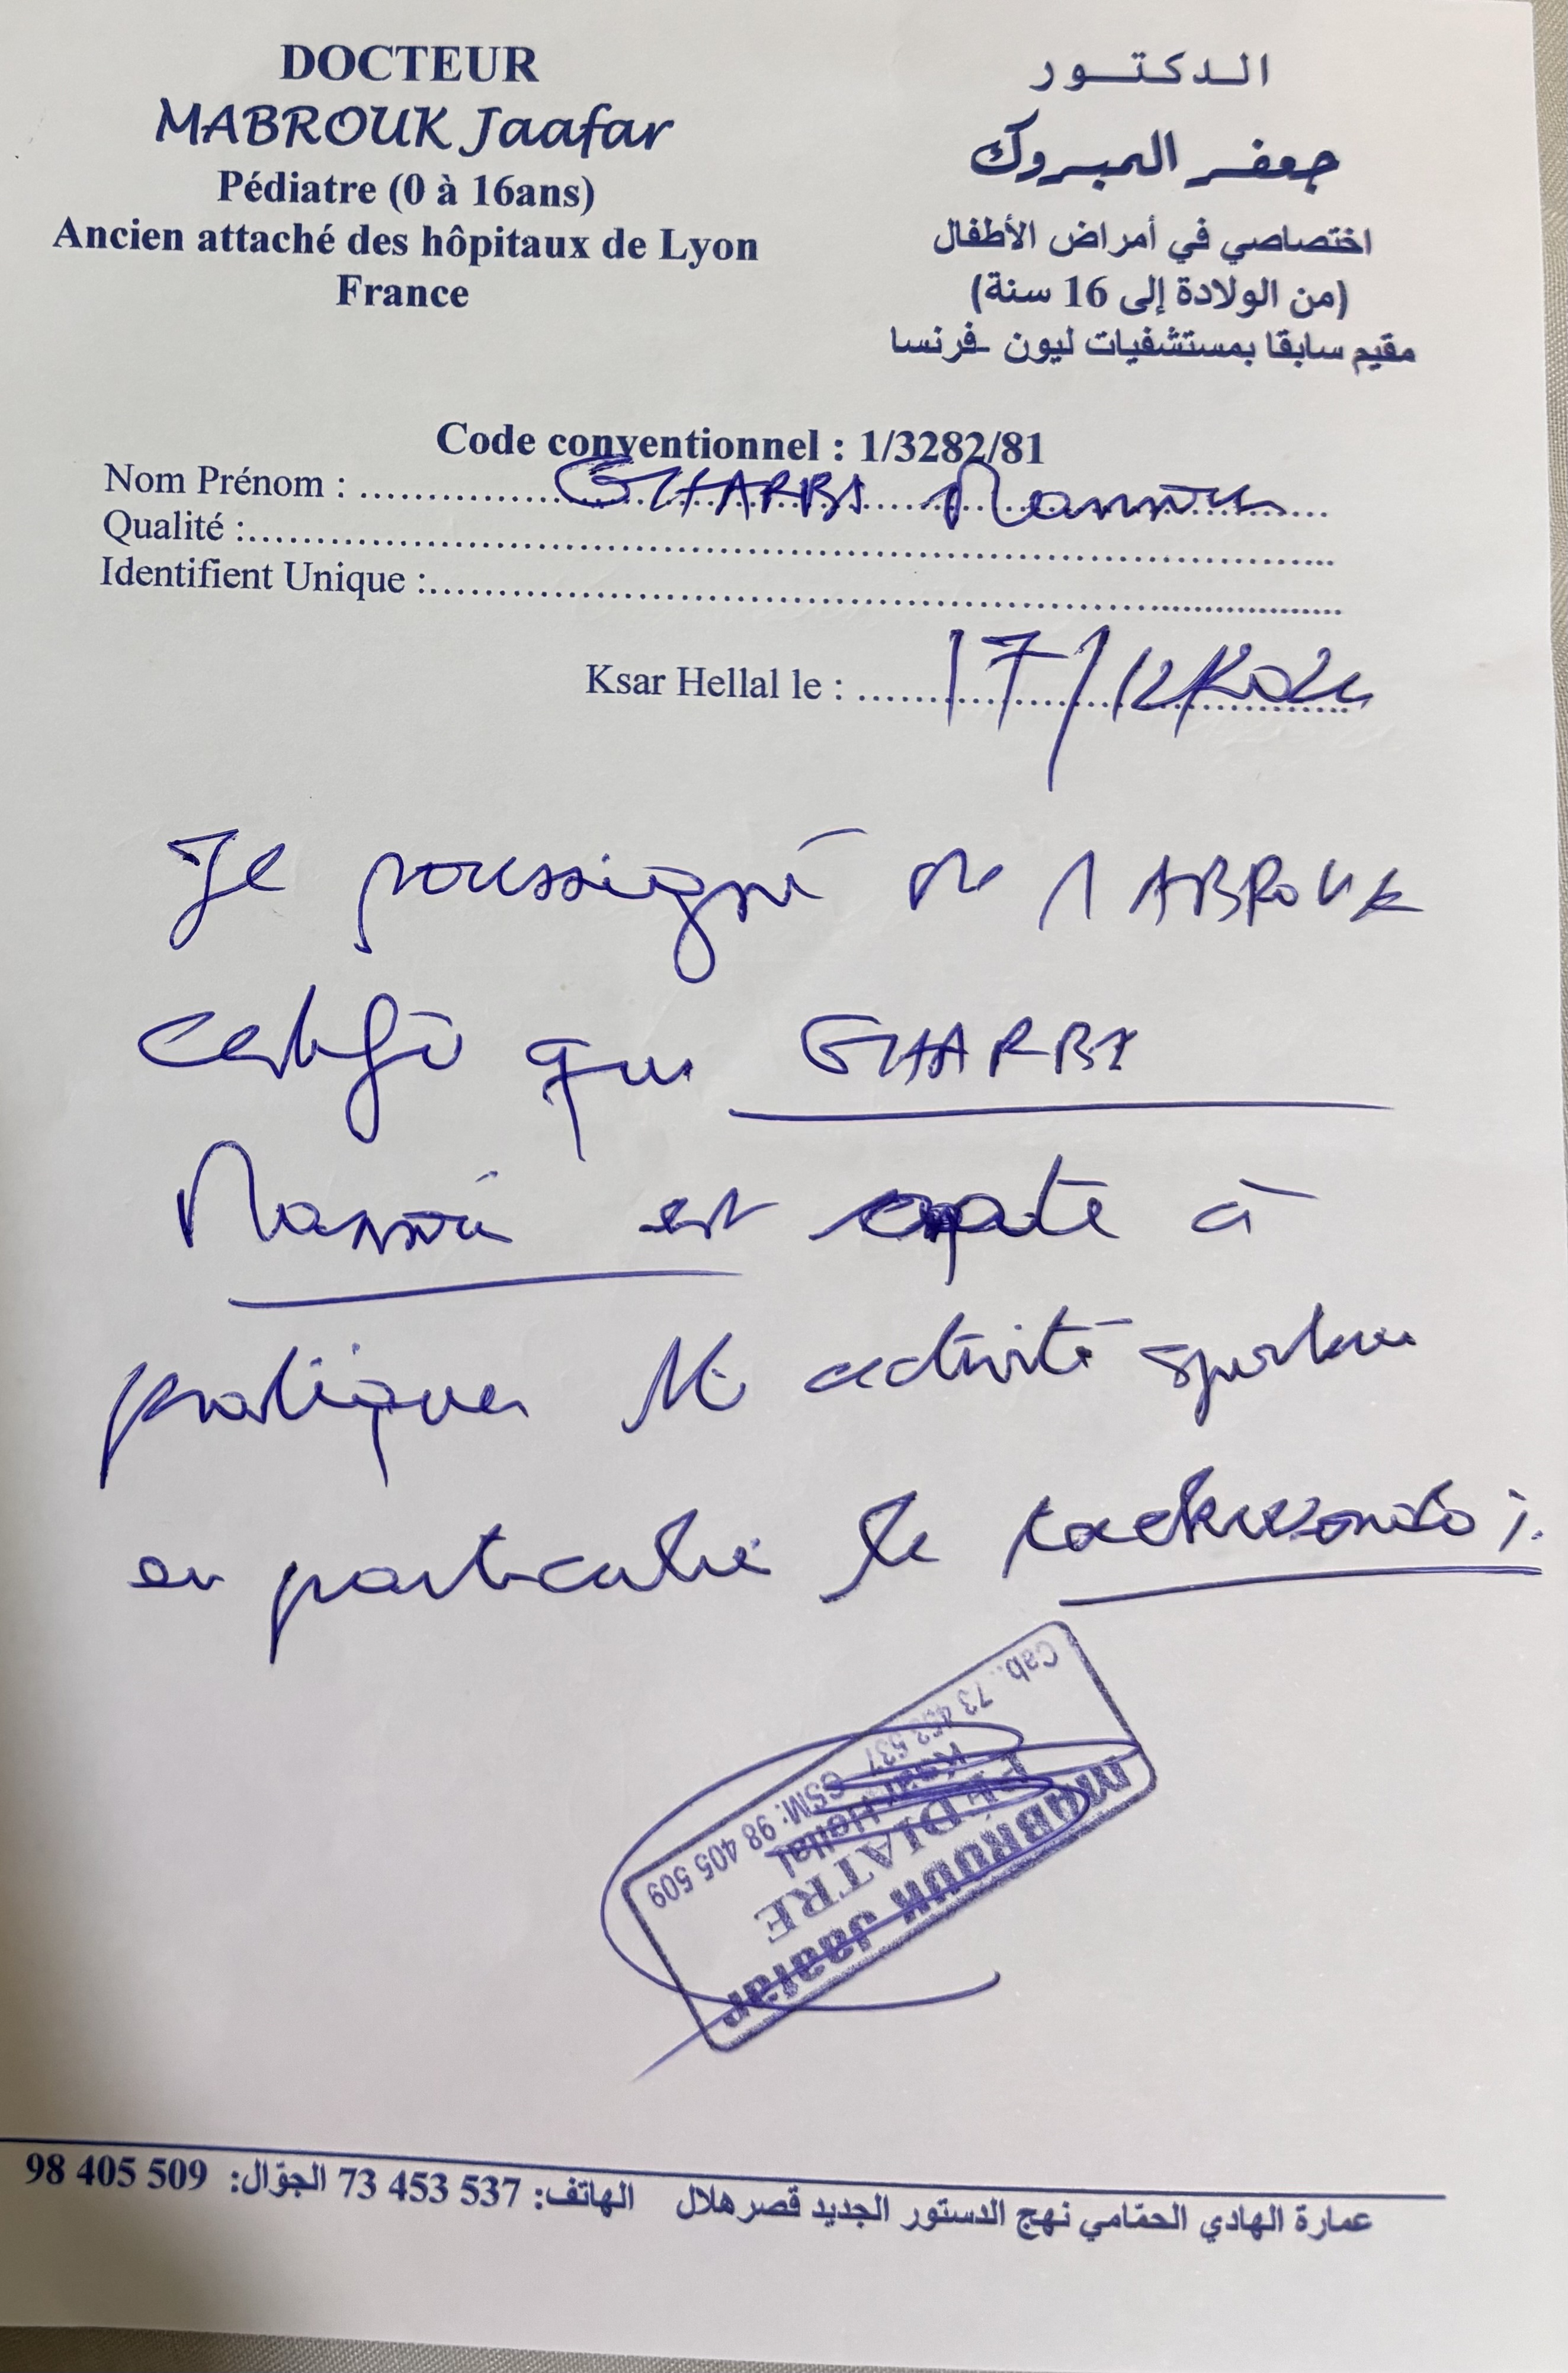 DOCTEUR
MABROUK Jaafar
Pédiatre (0 à 16ans)
Ancien attaché des hôpitaux de Lyon
France
الدكتور
جعفر المبروك
اختصاصي في أمراض الأطفال
(من الولادة إلى 16 سنة)
مقيم سابقا بمستشفيات ليون -فرنسا
Code conventionnel : 1/3282/81
Nom Prénom : GHARBI
Qualité :
Identifient Unique :
Ksar Hellal le : 17/12/2024
Je soussigné Dr MABROUK
certifie que GHARBI
est apte à
pratiquer activité sportive
en particulier le taekwondo
MABROUK Jaafar
PÉDIATRE
Ksar Hellal
Cab.. 73 453 537 GSM: 98 405 509
عمارة الهادي الحمّامي نهج الدستور الجديد قصر هلال الهاتف: 73 453 537 الجوّال: 98 405 509